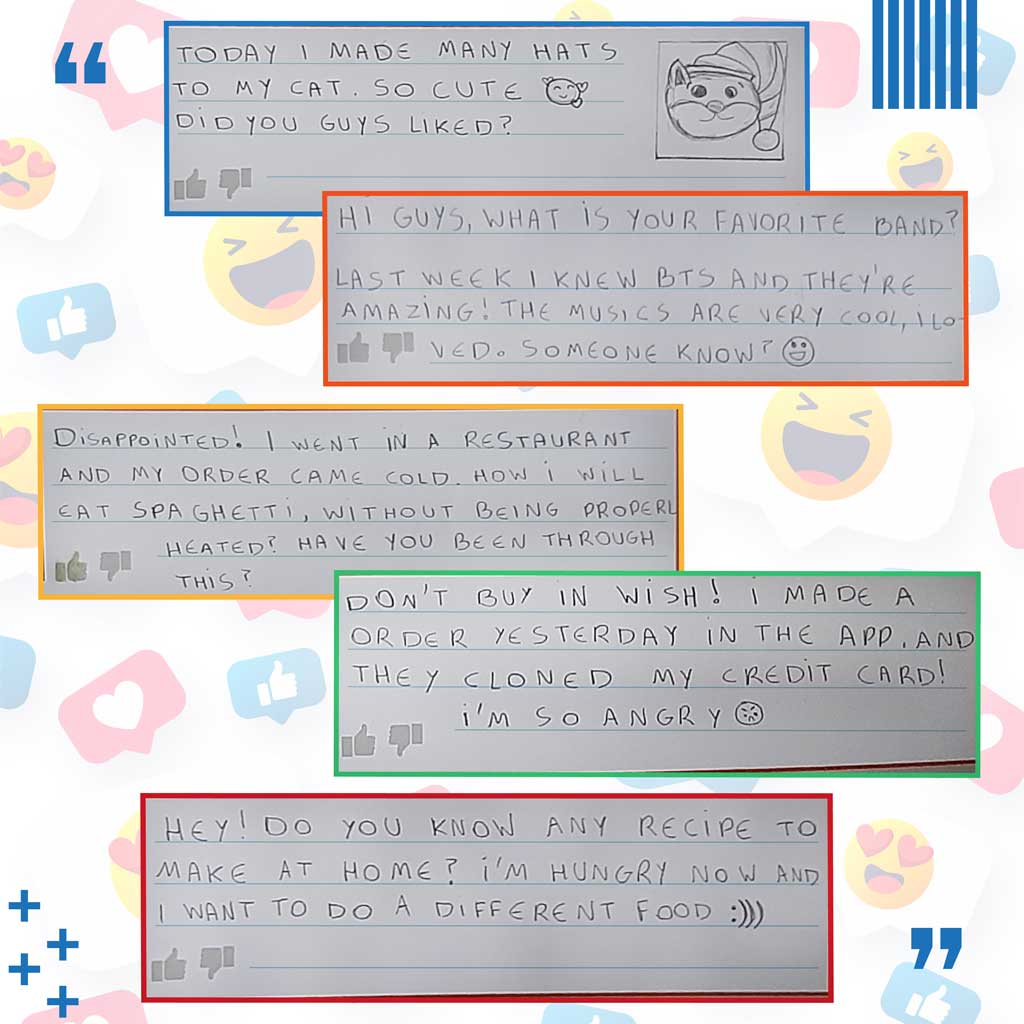 TODAY I MADE MANY HATS
TO MY CAT. SO CUTE
DID YOU GUYS LIKED?
HI GUYS, WHAT IS YOUR FAVORITE BAND?
LAST WEEK I KNEW BTS AND THEY'RE
AMAZING! THE MUSICS ARE VERY COOL, I LO-
VED. SOMEONE KNOW?
DISAPPOINTED! I WENT IN A RESTAURANT
AND MY ORDER CAME COLD. HOW I WILL
EAT SPAGHETTI, WITHOUT BEING PROPERL
HEATED? HAVE YOU BEEN THROUGH
THIS?
DON'T BUY IN WISH! I MADE A
ORDER YESTERDAY IN THE APP, AND
THEY CLONED MY CREDIT CARD!
I'M SO ANGRY
HEY! DO YOU KNOW ANY RECIPE TO
MAKE AT HOME? I'M HUNGRY NOW AND
I WANT TO DO A DIFFERENT FOOD :)))